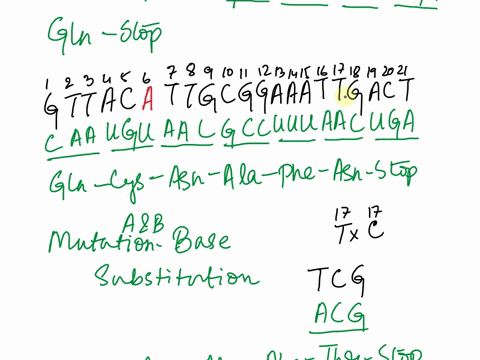 Gln - Stop
1 2 3 4 5 6 7 8 9 10 11 12 13 14 15 16 17 18 19 20 21
G T T A C A T T G C G G A A A T T G A C T
C A A U G U A A C G C C U U U A A C U G A
Gln - Cys - Asn - Ala - Phe - Asn - Stop
A&B
Mutation - Base
Substitution
17 17
T x C
T C G
A C G
Thr - Stop